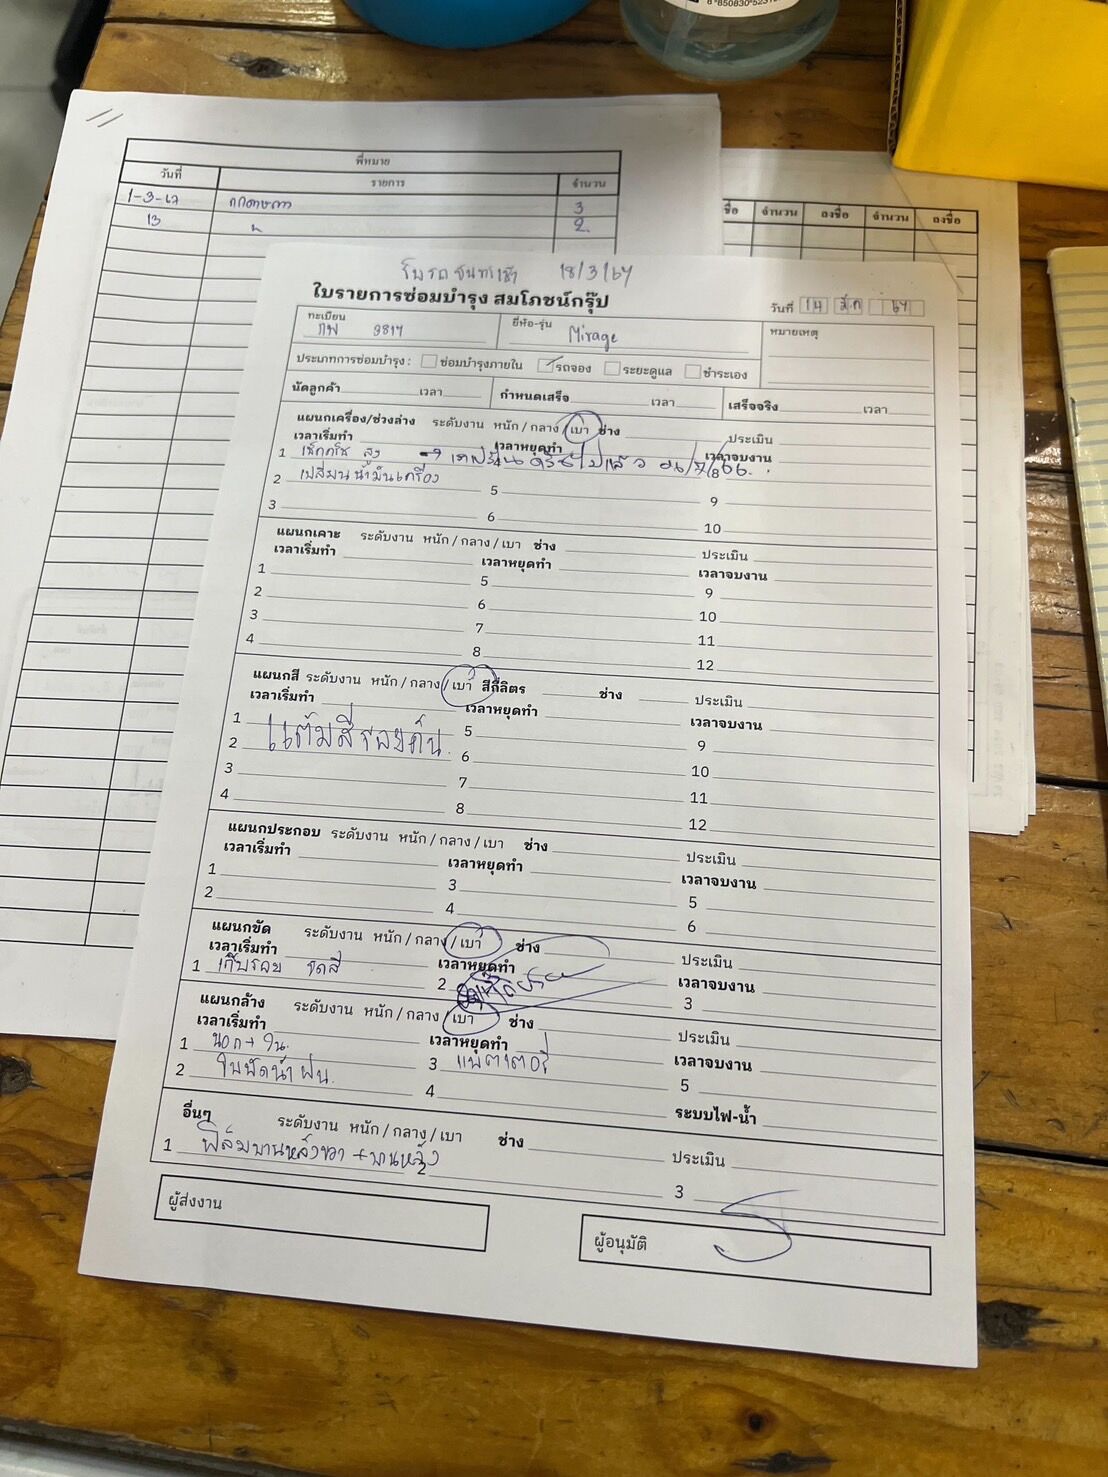 8 850830 523
พี่หมาย
วันที่ รายการ จำนวน
1-3-67 3
13 " 2
ชื่อ จำนวน ลงชื่อ จำนวน ลงชื่อ
18/3/67
ใบรายการซ่อมบำรุง สมโภชน์กรุ๊ป
วันที่ 14 มี.ค 67
ทะเบียน กพ 9817 ยี่ห้อ-รุ่น Mirage หมายเหตุ
ประเภทการซ่อมบำรุง : ซ่อมบำรุงภายใน รถจอง ระยะดูแล ชำระเอง
นัดลูกค้า เวลา กำหนดเสร็จ เวลา เสร็จจริง เวลา
แผนกเครื่อง/ช่วงล่าง ระดับงาน หนัก / กลาง / เบา ช่าง ประเมิน
เวลาเริ่มทำ เวลาหยุดทำ เวลาจบงาน
1 สูง → 4 8
2 เปลี่ยนน้ำมันเครื่อง 5 9
3 6 10
แผนกเคาะ ระดับงาน หนัก / กลาง / เบา ช่าง ประเมิน
เวลาเริ่มทำ เวลาหยุดทำ เวลาจบงาน
1 5 9
2 6 10
3 7 11
4 8 12
แผนกสี ระดับงาน หนัก / กลาง / เบา สีกี่ลิตร ช่าง ประเมิน
เวลาเริ่มทำ เวลาหยุดทำ เวลาจบงาน
1 แต้มสีรอยคัน 5 9
2 6 10
3 7 11
4 8 12
แผนกประกอบ ระดับงาน หนัก / กลาง / เบา ช่าง ประเมิน
เวลาเริ่มทำ เวลาหยุดทำ เวลาจบงาน
1 3 5
2 4 6
แผนกขัด ระดับงาน หนัก / กลาง / เบา ช่าง ประเมิน
เวลาเริ่มทำ เวลาหยุดทำ เวลาจบงาน
1 เก็บรอย ขัดสี 2 3
แผนกล้าง ระดับงาน หนัก / กลาง / เบา ช่าง ประเมิน
เวลาเริ่มทำ เวลาหยุดทำ เวลาจบงาน
1 นอก + ใน. 3 แบตเตอรี่ 5
2 ใบปัดน้ำฝน. 4 ระบบไฟ-น้ำ
อื่นๆ ระดับงาน หนัก / กลาง / เบา ช่าง ประเมิน
1 ฟิล์มบานหลังขวา + บานหลัง 2 3
ผู้ส่งงาน ผู้อนุมัติ